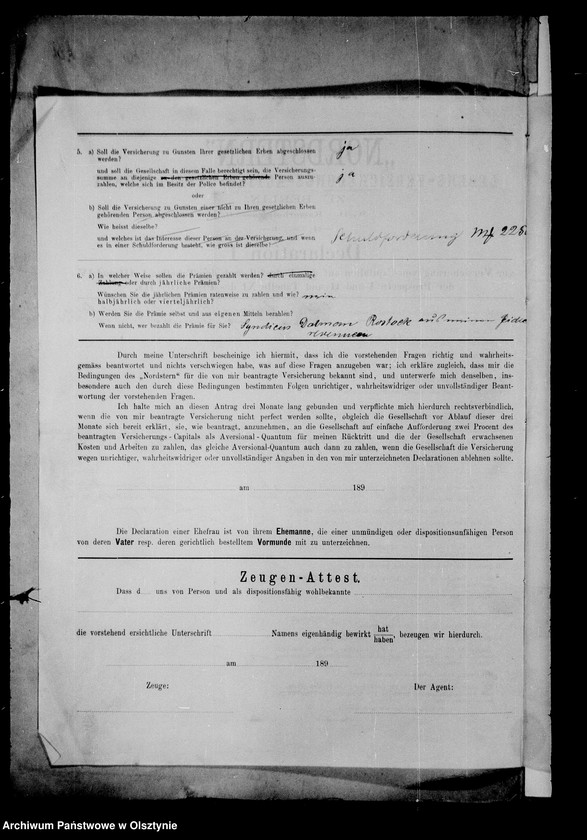 5. a) Soll die Versicherung zu Gunsten Ihrer gesetzlichen Erben abgeschlossen
werden?
ja
und soll die Gesellschaft in diesem Falle berechtigt sein, die Versicherungs-
summe an diejenige an den gesetzlichen Erben gehörende Person auszu-
zahlen, welche sich im Besitz der Police befindet?
ja
oder
b) Soll die Versicherung zu Gunsten einer nicht zu Ihren gesetzlichen Erben
gehörenden Person abgeschlossen werden?
Wie heisst dieselbe?
und welches ist das Interesse dieser Person an der Versicherung, und wenn
es in einer Schuldforderung besteht, wie gross ist dieselbe?
Schuldforderung
6. a) In welcher Weise sollen die Prämien gezahlt werden? durch einmalige
Zahlung oder durch jährliche Prämien?
Wünschen Sie die jährlichen Prämien ratenweise zu zahlen und wie?
halbjährlich oder vierteljährlich?
nein
b) Werden Sie die Prämie selbst und aus eigenen Mitteln bezahlen?
Wenn nicht, wer bezahlt die Prämie für Sie?
Syndicus Rostock
revenuen
Durch meine Unterschrift bescheinige ich hiermit, dass ich die vorstehenden Fragen richtig und wahrheits-
gemäss beantwortet und nichts verschwiegen habe, was auf diese Fragen anzugeben war; ich erkläre zugleich, dass mir die
Bedingungen des „Nordstern“ für die von mir beantragte Versicherung bekannt sind, und unterwerfe mich denselben, ins-
besondere auch den durch diese Bedingungen bestimmten Folgen unrichtiger, wahrheitswidriger oder unvollständiger Beant-
wortung der vorstehenden Fragen.
Ich halte mich an diesen Antrag drei Monate lang gebunden und verpflichte mich hierdurch rechtsverbindlich,
wenn die von mir beantragte Versicherung nicht perfect werden sollte, obgleich die Gesellschaft vor Ablauf dieser drei
Monate sich bereit erklärt, sie, wie beantragt, anzunehmen, an die Gesellschaft auf einfache Aufforderung zwei Procent des
beantragten Versicherungs-Capitals als Aversional-Quantum für meinen Rücktritt und die der Gesellschaft erwachsenen
Kosten und Arbeiten zu zahlen, das gleiche Aversional-Quantum auch dann zu zahlen, wenn die Gesellschaft die Versicherung
wegen unrichtiger, wahrheitswidriger oder unvollständiger Angaben in den von mir unterzeichneten Declarationen ablehnen sollte.
am 189
Die Declaration einer Ehefrau ist von ihrem Ehemanne, die einer unmündigen oder dispositionsunfähigen Person
von deren Vater resp. deren gerichtlich bestelltem Vormunde mit zu unterzeichnen.
Zeugen-Attest.
Dass d uns von Person und als dispositionsfähig wohlbekannte
die vorstehend ersichtliche Unterschrift Namens eigenhändig bewirkt hat
haben, bezeugen wir hierdurch.
am 189
Zeuge: Der Agent:
Archiwum Państwowe w Olsztynie